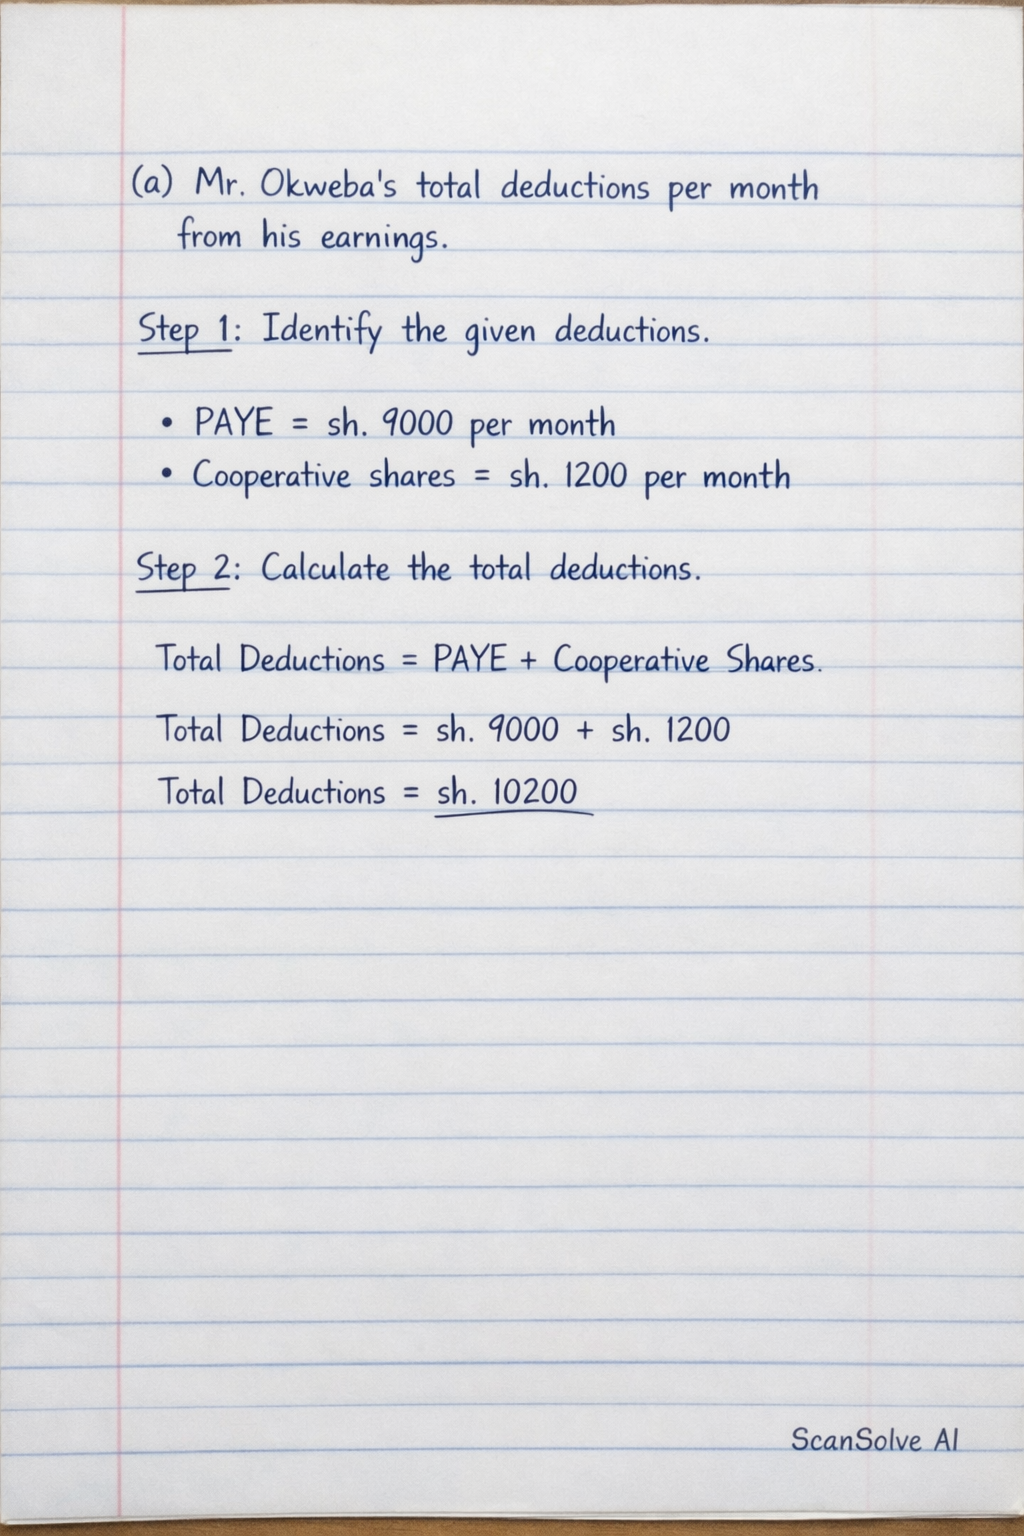 (a) Mr. Okweba's total deductions per month
from his earnings.
Step 1: Identify the given deductions.
• PAYE = sh. 9000 per month
• Cooperative shares = sh. 1200 per month
Step 2: Calculate the total deductions.
Total Deductions = PAYE + Cooperative Shares.
Total Deductions = sh. 9000 + sh. 1200
Total Deductions = sh. 10200
ScanSolve AI